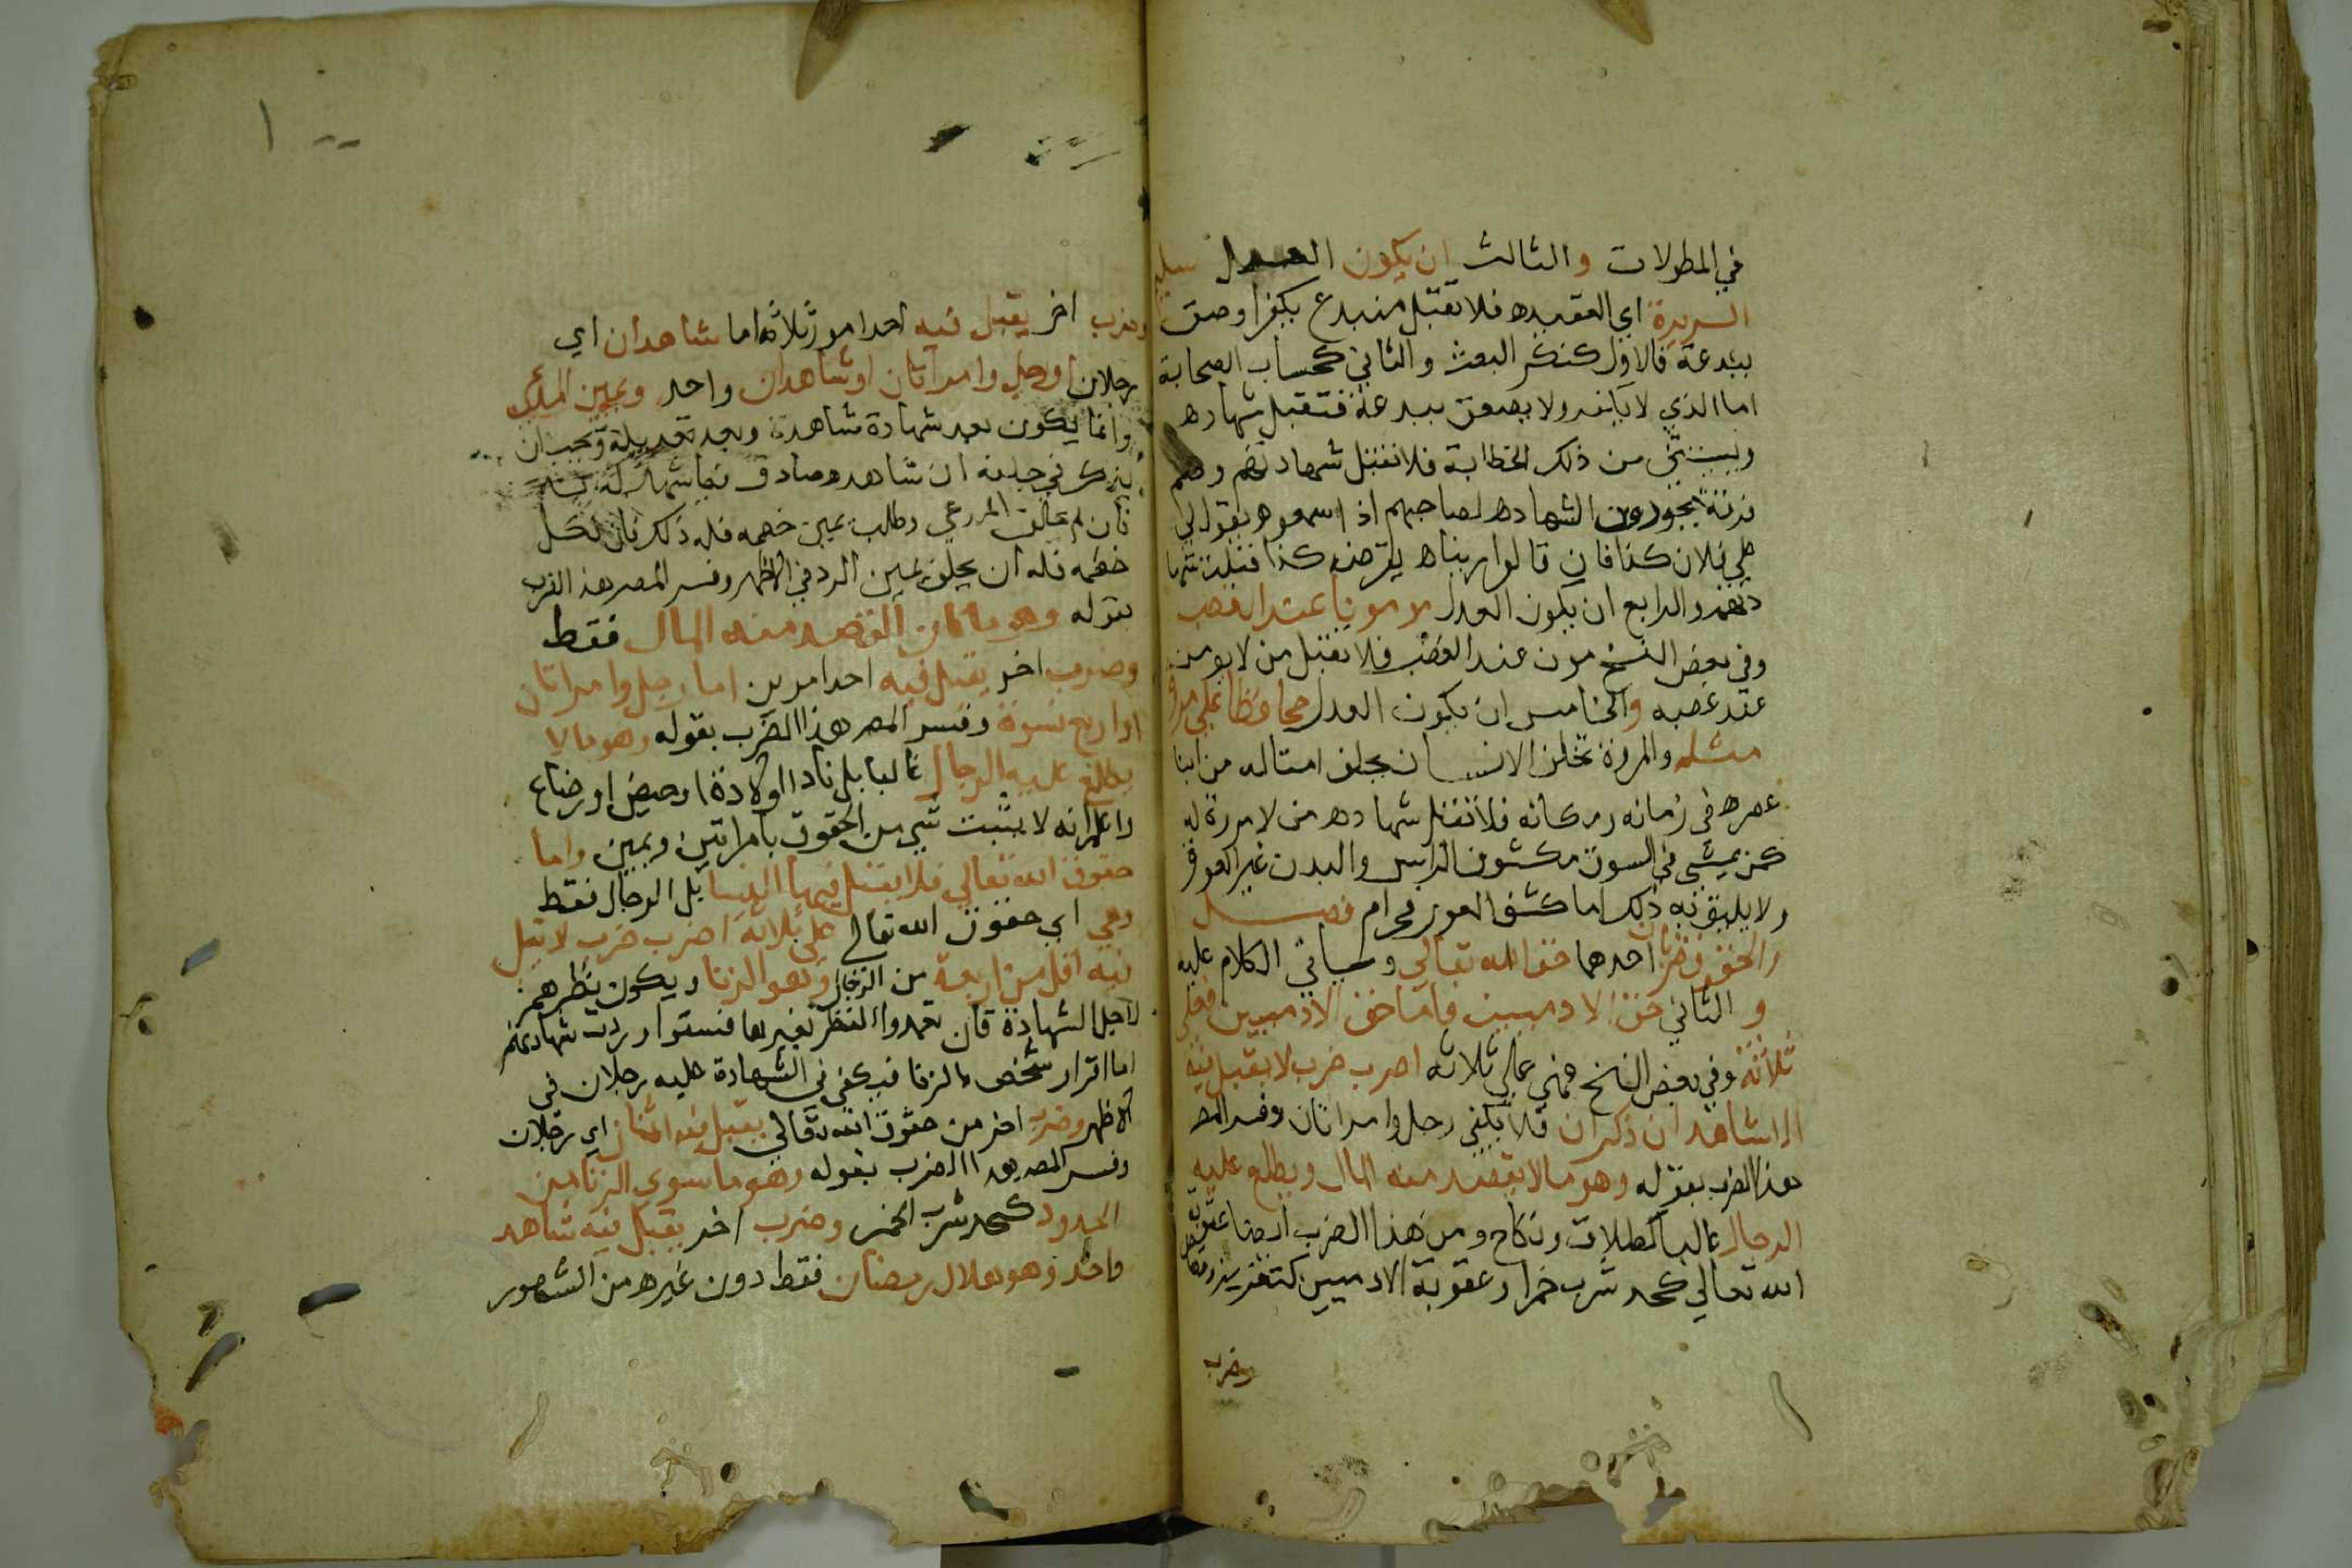 في المطولات والثالث ان يكون العدل سليم
السريرة اي العقيده فلا تقبل من مبتدع بكفر او صق
ببدعة فالاول كمنكر البعث والثاني كمساب الصحابة
اما الذي لا يكفر ولا يصعق ببدعة فتقبل شهاده
ويستثني من ذلك الخطابة فلا تقبل شهادتهم وهم
فرقة يجوزون الشهاده لصاحبهم اذا سمعوه يقول لي
علي فلان كذا فان قالوا رايناه يقرضه كذا قبلت شها
دتهم والرابع ان يكون العدل مومونا عند الغضب
وفي بعض النسخ مون عند الغضب فلا تقبل من لا يومن
عند غضبه والخامس ان يكون العدل محافظا علي مروة
مثله والمروة تخلق الانسان بخلق امثاله من ابنا
عصره في زمانه ومكانه فلا تقبل شهاده من لا مروة له
كمن يمشي في السوق مكشوف الراس والبدن غير العورة
ولا يليق به ذلك اما كشف العورة فحرام فصل
والحقوق ضربان احدهما حق الله تعالي وسياتي الكلام عليه
والثاني حق الادميين فاما حق الادميين فعلي
ثلاثة وفي بعض النسخ فهي علي ثلاثه اضرب ضرب لا يقبل فيه
الا شاهدان ذكران فلا يكفي رجل وامراتان وفسر المص
هذا الضرب بقوله وهو ما لا يقصد منه المال ويطلع عليه
الرجال غالبا كطلاق ونكاح ومن هذا الضرب ايضا عقوبة
الله تعالي كحد شرب خمر او عقوبة الادميين كتعزير وقصاص
وضرب
وضرب اخر يقبل فيه احد امور ثلاثه اما شاهدان اي
رجلان او رجل وامراتان او شاهدان واحد ويمين المدعي
وانما يكون بعد شهادة شاهده وبعد تعديله ويجب ان
يذكر في حلفه ان شاهده صادق فيما شهد له به
فان لم يحلف المدعي وطلب يمين خصمه فله ذلك فان نكل
خصمه فله ان يحلف يمين الرد في الاظهر وفسر المص هذا الضرب
بقوله وهو ما كان القصد منه المال فقط
وضرب اخر يقبل فيه احد امرين اما رجل وامراتان
او اربع نسوة وفسر المص هذا الضرب بقوله وهو ما لا
يطلع عليه الرجال غالبا بل نادرا كولادة او حيض او رضاع
واعلم انه لا يثبت شي من الحقوق بامراتين ويمين واما
حقوق الله تعالي فلا يقبل فيها النسا بل الرجال فقط
وهي اي حقوق الله تعالي علي ثلاثة اضرب ضرب لا يقبل
فيه اقل من اربعة من الرجال وهو الزنا ويكون نظرهم
لاجل الشهادة فان تعمدوا النظر لغيرها فسقوا وردت شهادتهم
اما اقرار شخص بالزنا فيكفي في الشهادة عليه رجلان في
الاظهر وضرب اخر من حقوق الله تعالي يقبل فيه اثنان اي رجلان
وفسر المص هذا الضرب بقوله وهو ما سوي الزنا من
الحدود كحد شرب الخمر وضرب اخر يقبل فيه شاهد
واحد وهو هلال رمضان فقط دون غيره من الشهور